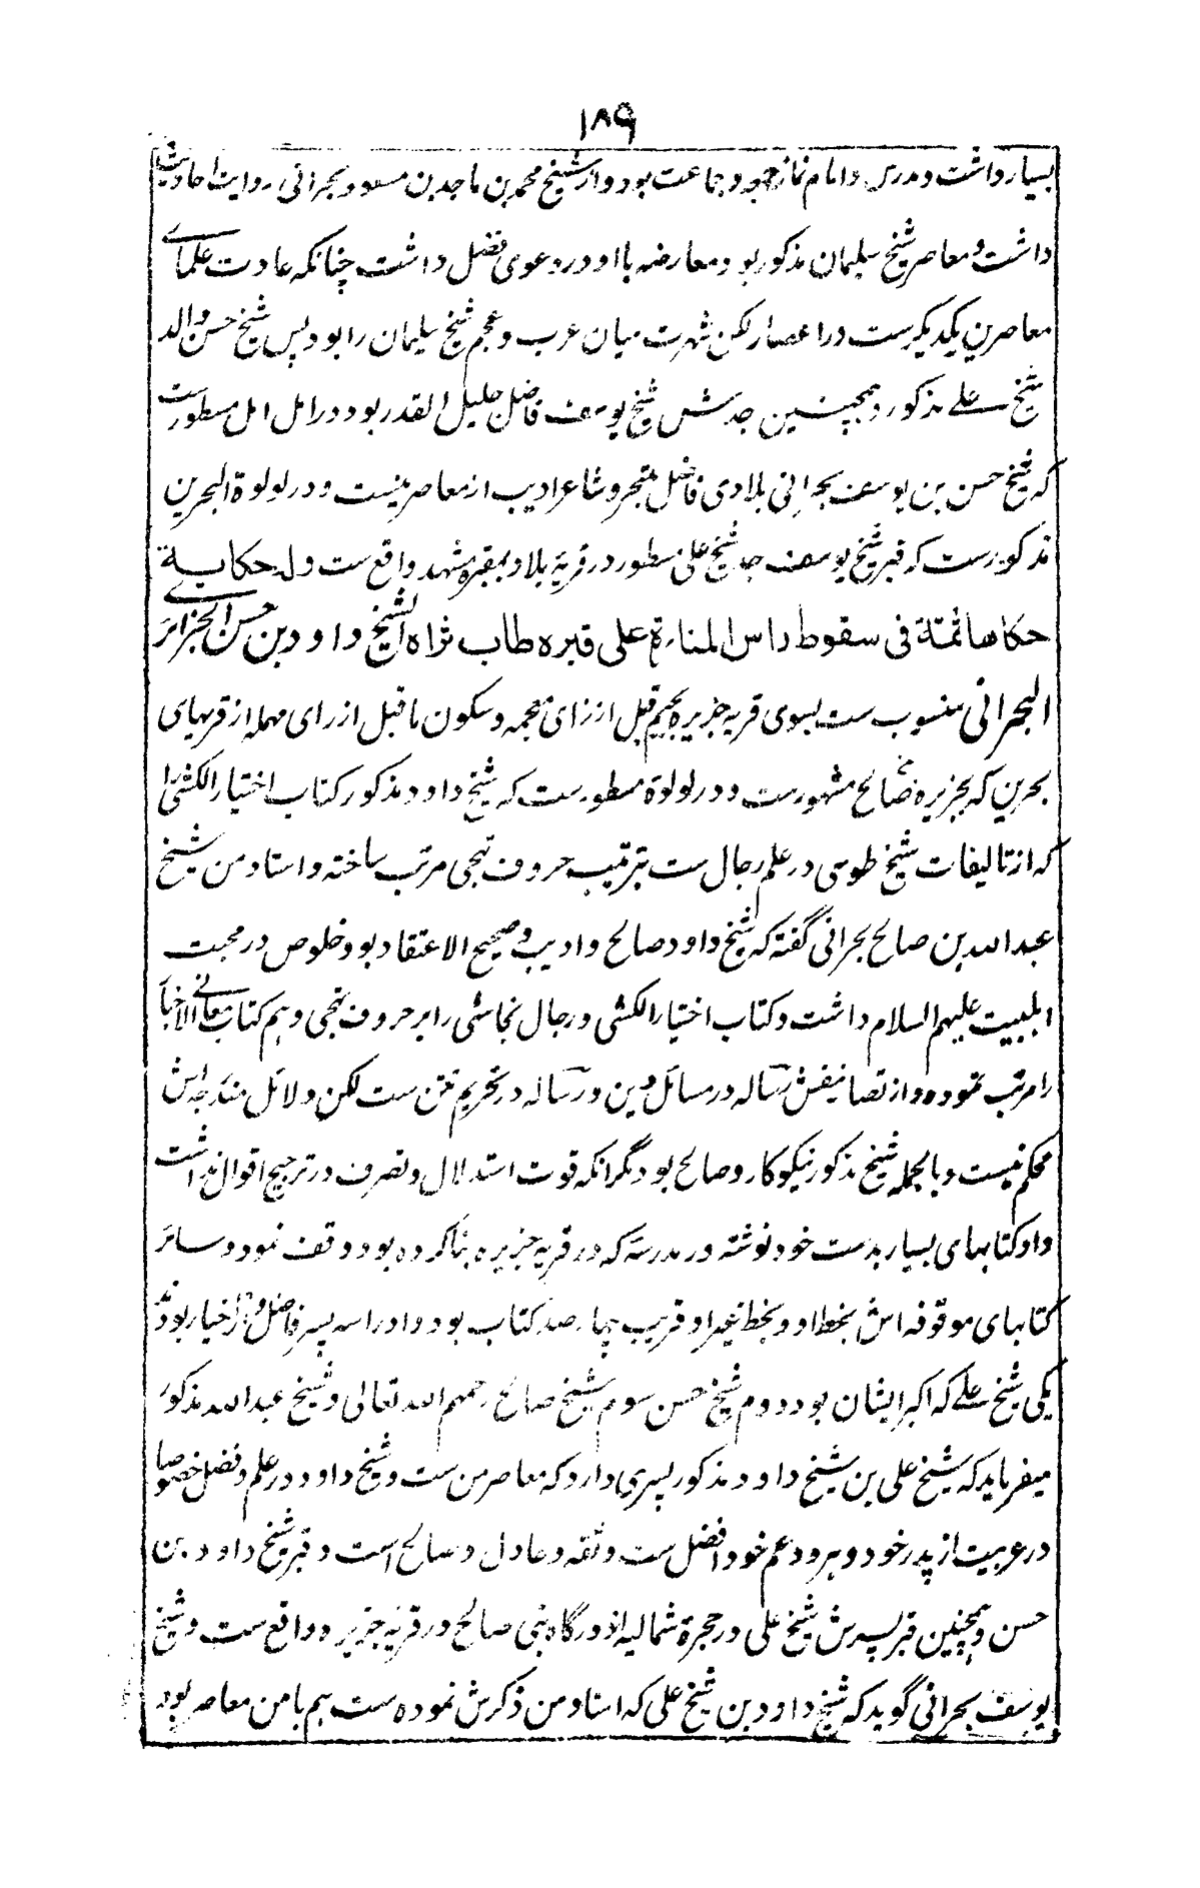 ۱۸۹
بسیار داشت و مدرس و امام نماز جمعه و جماعت بود و از شیخ محمد بن ماجد بن مسعود بحرانی روایت احادیث
داشت و معاصر شیخ سلیمان مذکور بود معارضه با او در دعوی فضل داشت چنانکه عادت علمای
معاصرین یکدیگرست در اعصار لکن شهرت میان عرب و عجم شیخ سلیمان را بود پس شیخ حسن والد
شیخ علے مذکور و همچنین جدش شیخ یوسف فاضل جلیل القدر بود در امل امل مسطورست
که شیخ حسن بن یوسف بحرانی بلادی فاضل متبحر و شاعر ادیب از معاصرینست و در لولوة البحرین
مذکورست که قبر شیخ یوسف جد شیخ علی مسطور در قریهٔ بلاد بمقبره مشهد واقع ست وله حکایة
حکاها ثمتة فی سقوط راس المنارة علی قبره طاب ثراه الشیخ داود بن حسن الجزائرے
البحرانی منسوب ست بسوی قریه جزیره بجیم قبل از زای معجمه و سکون ماقبل از رای مهمله از قریهای
بحرین که بجزیره صالح مشهورست و در لولوة مسطورست که شیخ داود مذکور کتاب اختیار الکشی را
که از تالیفات شیخ طوسی در علم رجال ست بترتیب حروف تهجی مرتب ساخته و استاد من شیخ
عبد الله بن صالح بحرانی گفته که شیخ داود صالح و ادیب و صحیح الاعتقاد بود خلوص در محبت
اهلبیت علیهم السلام داشت و کتاب اختیار الکشی و رجال نجاشی را بر حروف تهجی و هم کتاب معانے الاخبار
را مرتب نموده و از تصانیفش رساله در مسائل دین و رساله در تحریم تتن ست لکن دلائل مندرجه اش
محکم نیست و بالجمله شیخ مذکور نیکوکار و صالح بود مگر انکه قوت استدلال و تصرف در ترجیح اقوال نداشت
و او کتابهای بسیار بدست خود نوشته در مدرسه که در قریه جزیره بنا کرده بود وقف نمود و سائر
کتابهای موقوفه اش بخط او و بخط غیر او قریب چهار صد کتاب بود و او را سه پسر فاضل و از اخیار بودند
یکی شیخ علے که اکبر ایشان بود دوم شیخ حسن سوم شیخ صالح رحمهم الله تعالی و شیخ عبد الله مذکور
میفرماید که شیخ علی بن شیخ داود مذکور پسری دارد که معاصر من ست و شیخ داود در علم و فضل خصوصا
در عربیت از پدر خود و هر دو عم خود افضل ست و ثقه و عادل و صالح است و قبر شیخ داود بن
حسن و همچنین قبر پسرش شیخ علی در حجرهٔ شمالیه از درگاه نبی صالح در قریهٔ جزیره واقع ست و شیخ
یوسف بحرانی گوید که شیخ داود بن شیخ علی که استاد من ذکرش نموده ست هم با من معاصر بود